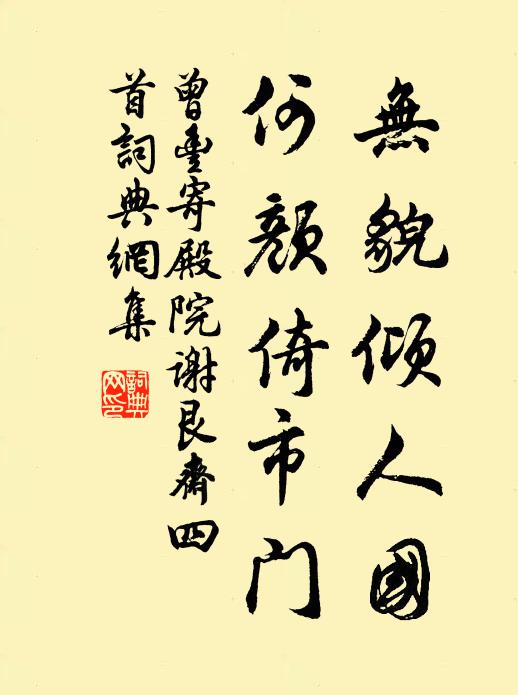 無貌傾人國
何顏倚市門
曾豐寄殿院謝艮齋四
首詞典網集
詞典
网印